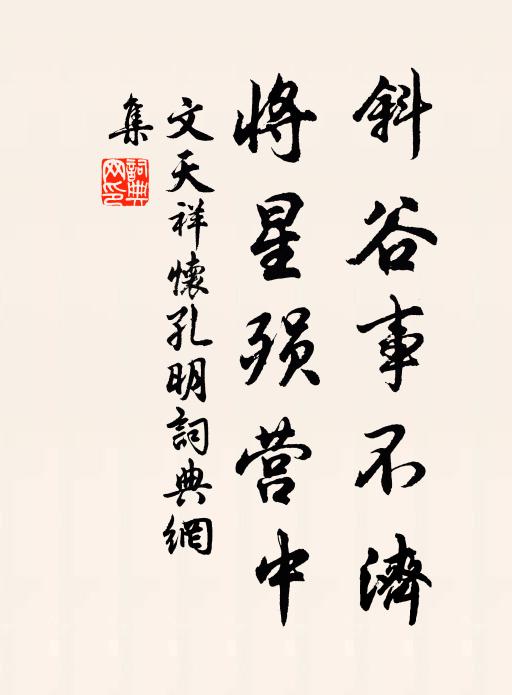 斜谷事不濟
将星殞营中
文天祥懷孔明詞典網
集
詞典網印